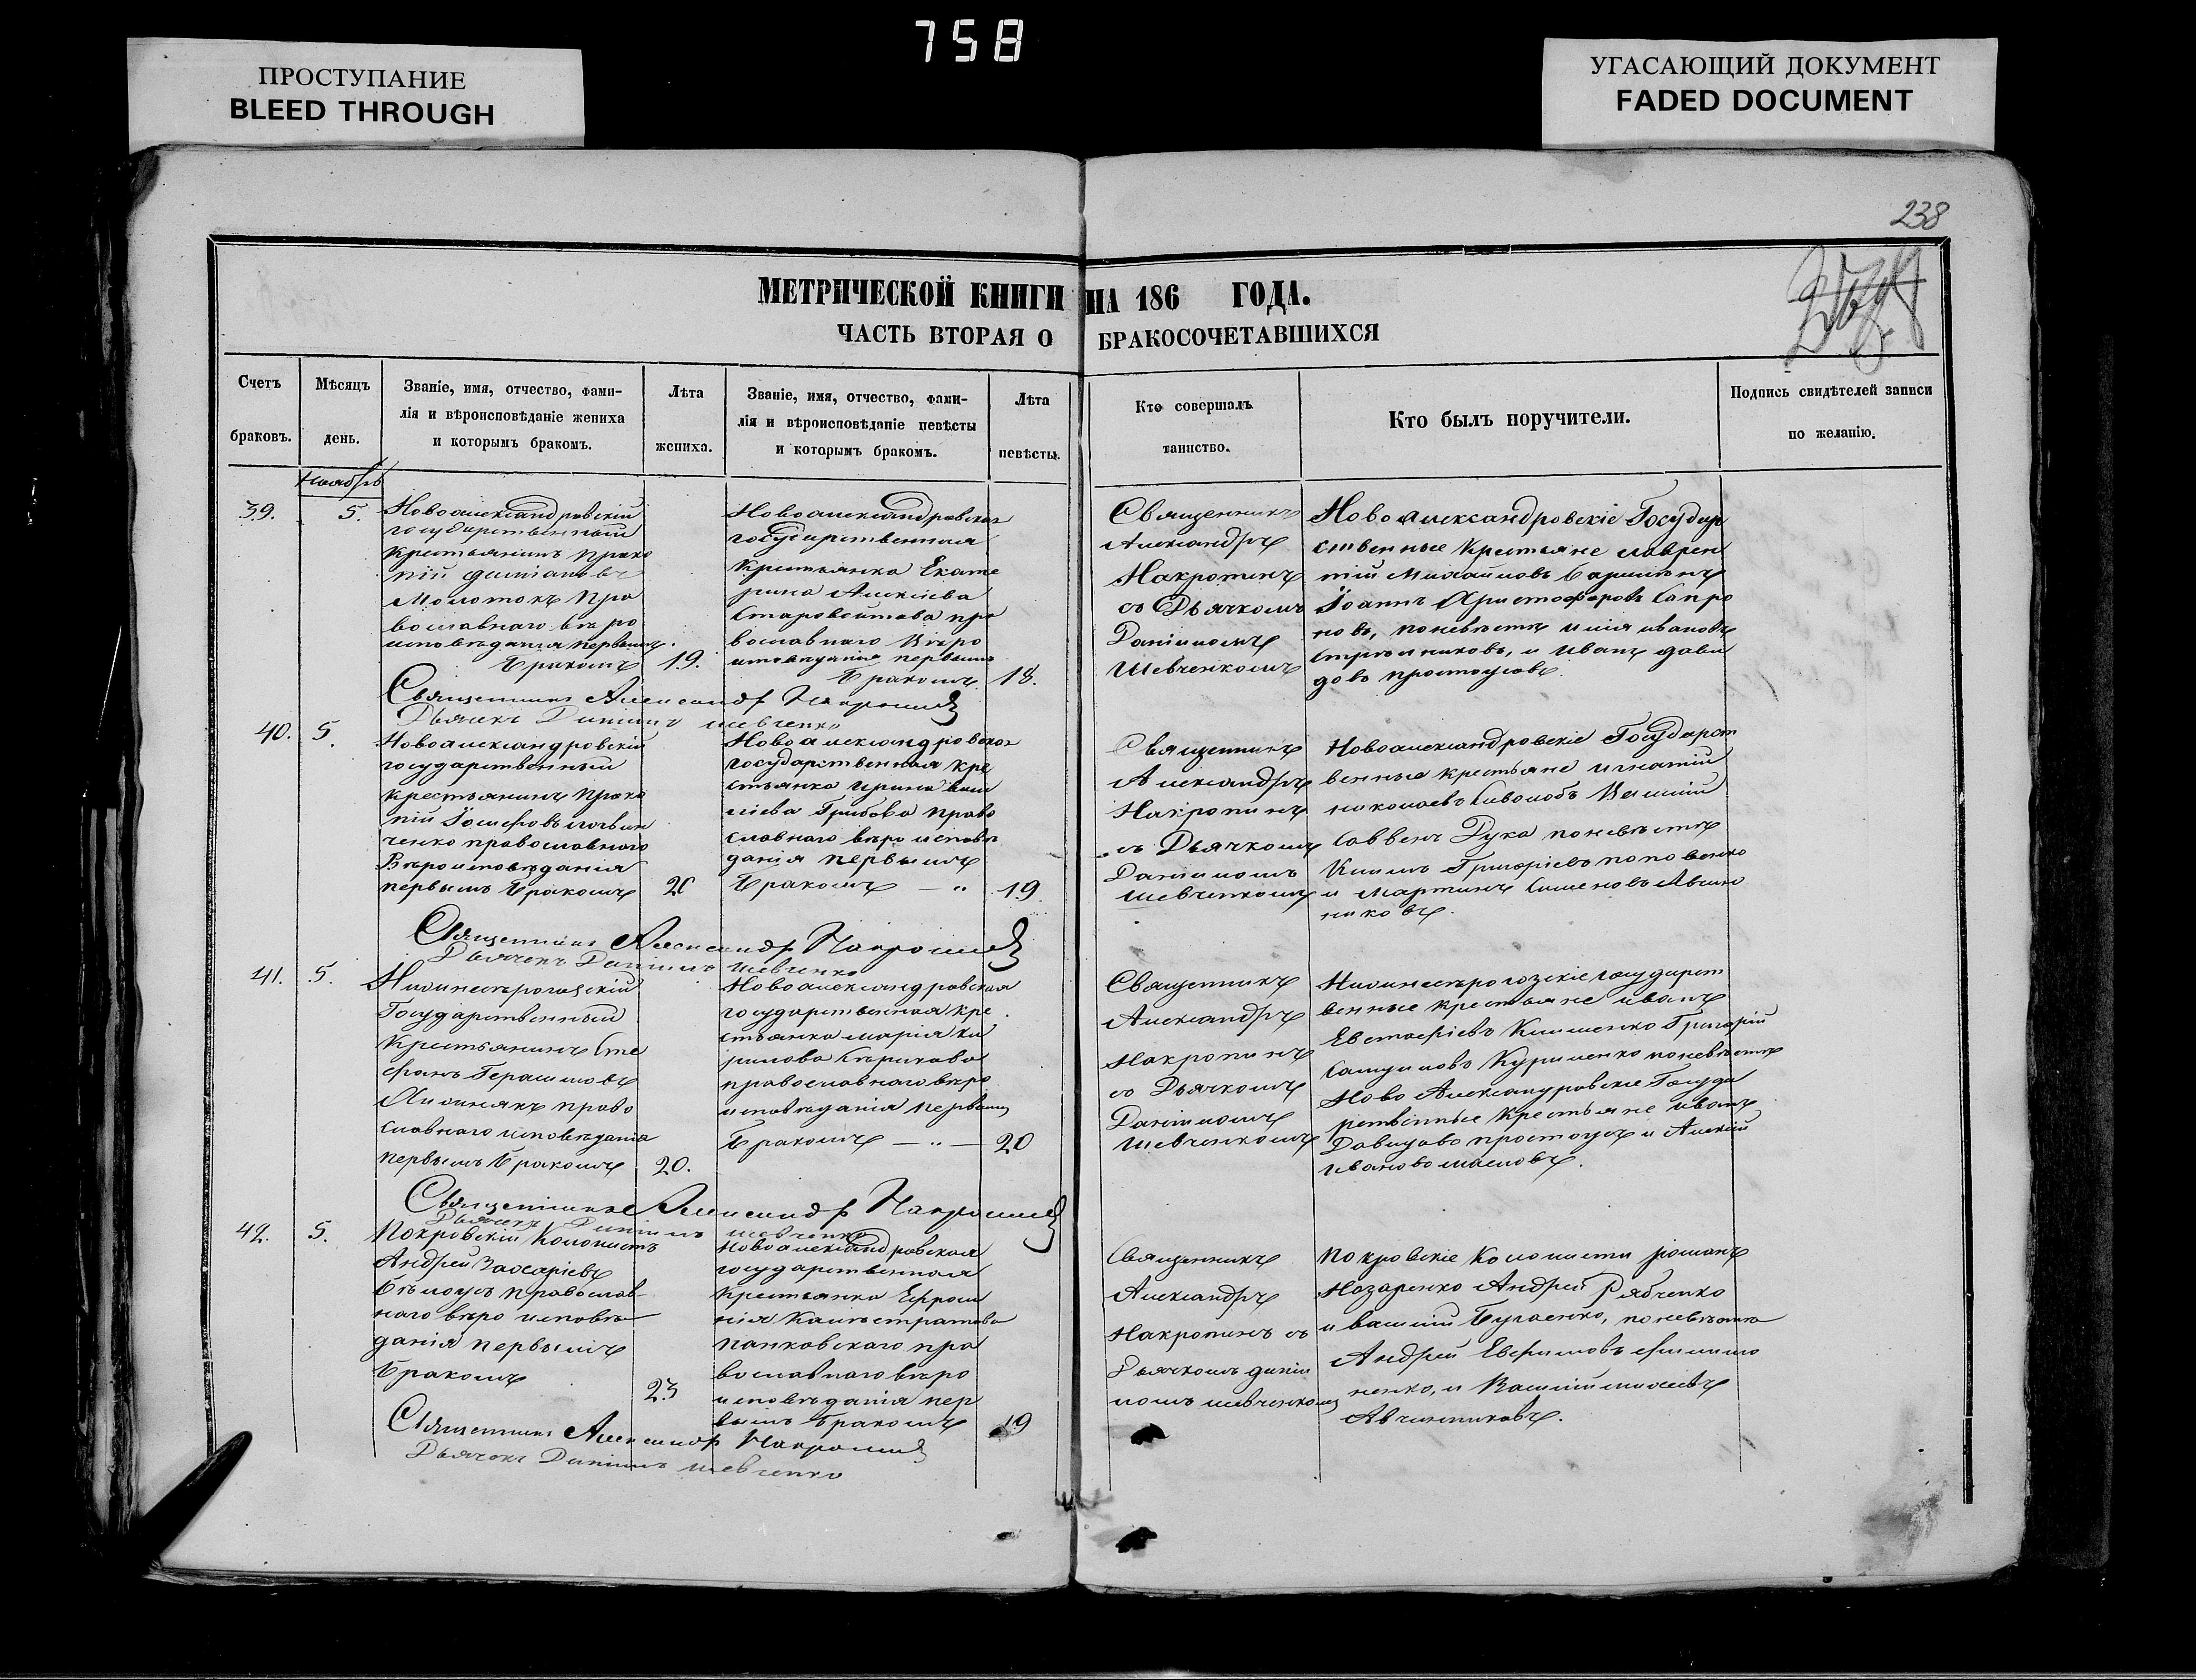 758
ПРОСТУПАНИЕ
BLEED THROUGH
УГАСАЮЩИЙ ДОКУМЕНТ
FADED DOCUMENT
238
МЕТРИЧЕСКОЙ КНИГИ НА 186 ГОДА.
ЧАСТЬ ВТОРАЯ О БРАКОСОЧЕТАВШИХСЯ
Счетъ
браковъ.
Мѣсяцъ
день.
Званіе, имя, отчество, фами-
лія и вѣроисповѣданіе жениха
и которымъ бракомъ.
Лѣта
жениха.
Званіе, имя, отчество, фами-
лія и вѣроисповѣданіе невѣсты
и которымъ бракомъ.
Лѣта
невѣсты.
Кто совершалъ
таинство.
Кто былъ поручители.
Подпись свидѣтелей записи
по желанію.
Ноябрь
39.
5.
Новоалександровскій
государственный
крестьянинъ Проко
пій
Молотокъ Пра
вославнаго вѣро
исповѣданія первымъ
бракомъ
19.
Новоалександровская
государственная
крестьянка Екате
рина Алексіева
Старовойтова пра
вославнаго Вѣро
исповѣданія первымъ
бракомъ
18.
Священникъ
Александръ
Накропинъ
съ Дьячкомъ
Даніиломъ
Шевченкомъ
Новоалександровскіе Государ
ственные Крестьяне Лаврен
тій Михайловъ
Іоаннъ Христофоровъ Сапро
новъ, по невѣстѣ Илія Ивановъ
Стрѣльниковъ, и Иванъ Дави
довъ
Священникъ Александръ Накропинъ
Дьячекъ Даніилъ Шевченко
40.
5.
Новоалександровскій
государственный
крестьянинъ Проко
пій Іосифовъ
православнаго
Вѣроисповѣданія
первымъ бракомъ
20
Новоалександровская
государственная кре
стьянка Ирина Васи
ліева Грибова право
славнаго вѣроисповѣ
данія первымъ
бракомъ — „
19
Священникъ
Александръ
Накропинъ
съ Дьячкомъ
Даніиломъ
Шевченкомъ
Новоалександровскіе Государст
венные крестьяне Игнатій
Николаевъ Василій
Саввенъ Дука по невѣстѣ
Климъ Григоріевъ Поповенко
и Мартинъ Семеновъ
Священникъ Александръ Накропинъ
Дьячекъ Даніилъ Шевченко
41.
5.
Нижнесѣрогозскій
Государственный
Крестьянинъ Сте
фанъ Герасимовъ
право
славнаго исповѣданія
первымъ бракомъ
20.
Новоалександровская
государственная кре
стьянка Марія Ки
рилова
православнаго вѣро
исповѣданія первымъ
бракомъ — „ —
20
Священникъ
Александръ
Накропинъ
съ Дьячкомъ
Даніиломъ
Шевченкомъ
Нижнесѣрогозскіе государст
венные крестьяне Иванъ
Евстафіевъ Клименко Григорій
Самуиловъ Куриленко по невѣстѣ
Ново Александровскіе Госуда
рственные Крестьяне Иванъ
Давидовъ и Алексій
Ивановъ Масловъ.
Священникъ Александръ Накропинъ
Дьячекъ Даніилъ Шевченко
42.
5.
Покровскій Колонистъ
Андрей Захаріевъ
Бѣлоусъ православ
наго вѣро исповѣ
данія первымъ
бракомъ
23
Новоалександровская
государственная
крестьянка Ефроси
нія Калистратова
Панковскаго пра
вославнаго вѣро
исповѣданія пер
вымъ бракомъ
19
Священникъ
Александръ
Накропинъ съ
Дьячкомъ Даніи
ломъ Шевченкомъ
Покровскіе Колонисти Романъ
Назаренко Андрей Рябченко
и Василій Бугаенко, по невѣстѣ
Андрей Ефимовъ Филимо
ненко, и Василій
Авчинниковъ.
Священникъ Александръ Накропинъ
Дьячекъ Даніилъ Шевченко